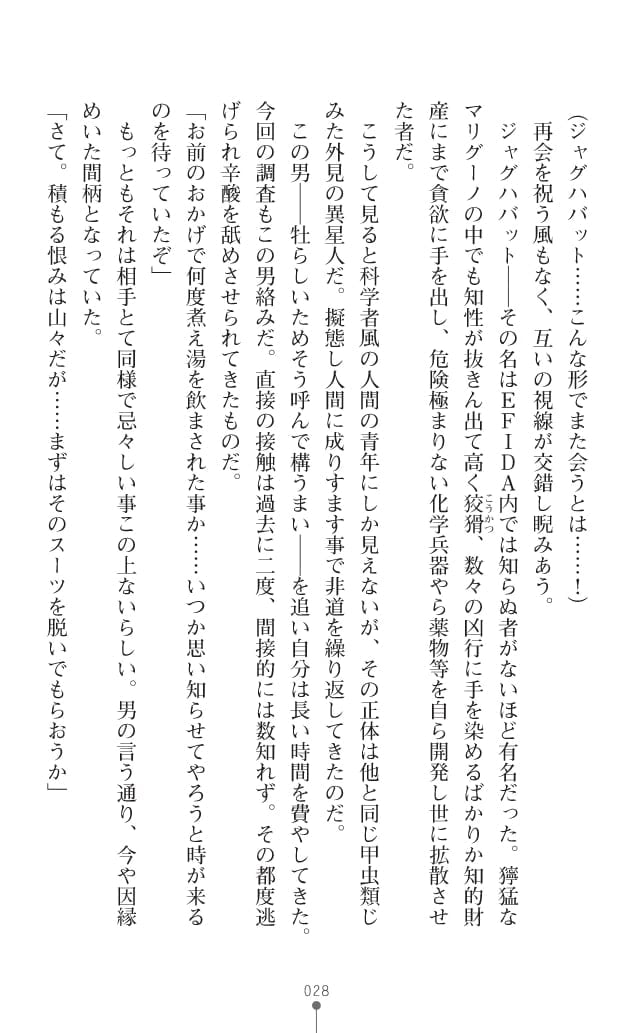 （ジャグハバット……こんな形でまた会うとは……！）
再会を祝う風もなく、互いの視線が交錯し睨みあう。
ジャグハバット――その名はＥＦＩＤＡ内では知らぬ者がないほど有名だった。獰猛な
マリグーノの中でも知性が抜きん出て高く狡猾、数々の凶行に手を染めるばかりか知的財
こうかつ
産にまで貪欲に手を出し、危険極まりない化学兵器やら薬物等を自ら開発し世に拡散させ
た者だ。
こうして見ると科学者風の人間の青年にしか見えないが、その正体は他と同じ甲虫類じ
みた外見の異星人だ。擬態し人間に成りすます事で非道を繰り返してきたのだ。
この男――牡らしいためそう呼んで構うまい――を追い自分は長い時間を費やしてきた。
今回の調査もこの男絡みだ。直接の接触は過去に二度、間接的には数知れず。その都度逃
げられ辛酸を舐めさせられてきたものだ。
「お前のおかげで何度煮え湯を飲まされた事か……いつか思い知らせてやろうと時が来る
のを待っていたぞ」
もっともそれは相手とて同様で忌々しい事この上ないらしい。男の言う通り、今や因縁
めいた間柄となっていた。
「さて。積もる恨みは山々だが……まずはそのスーツを脱いでもらおうか」
028